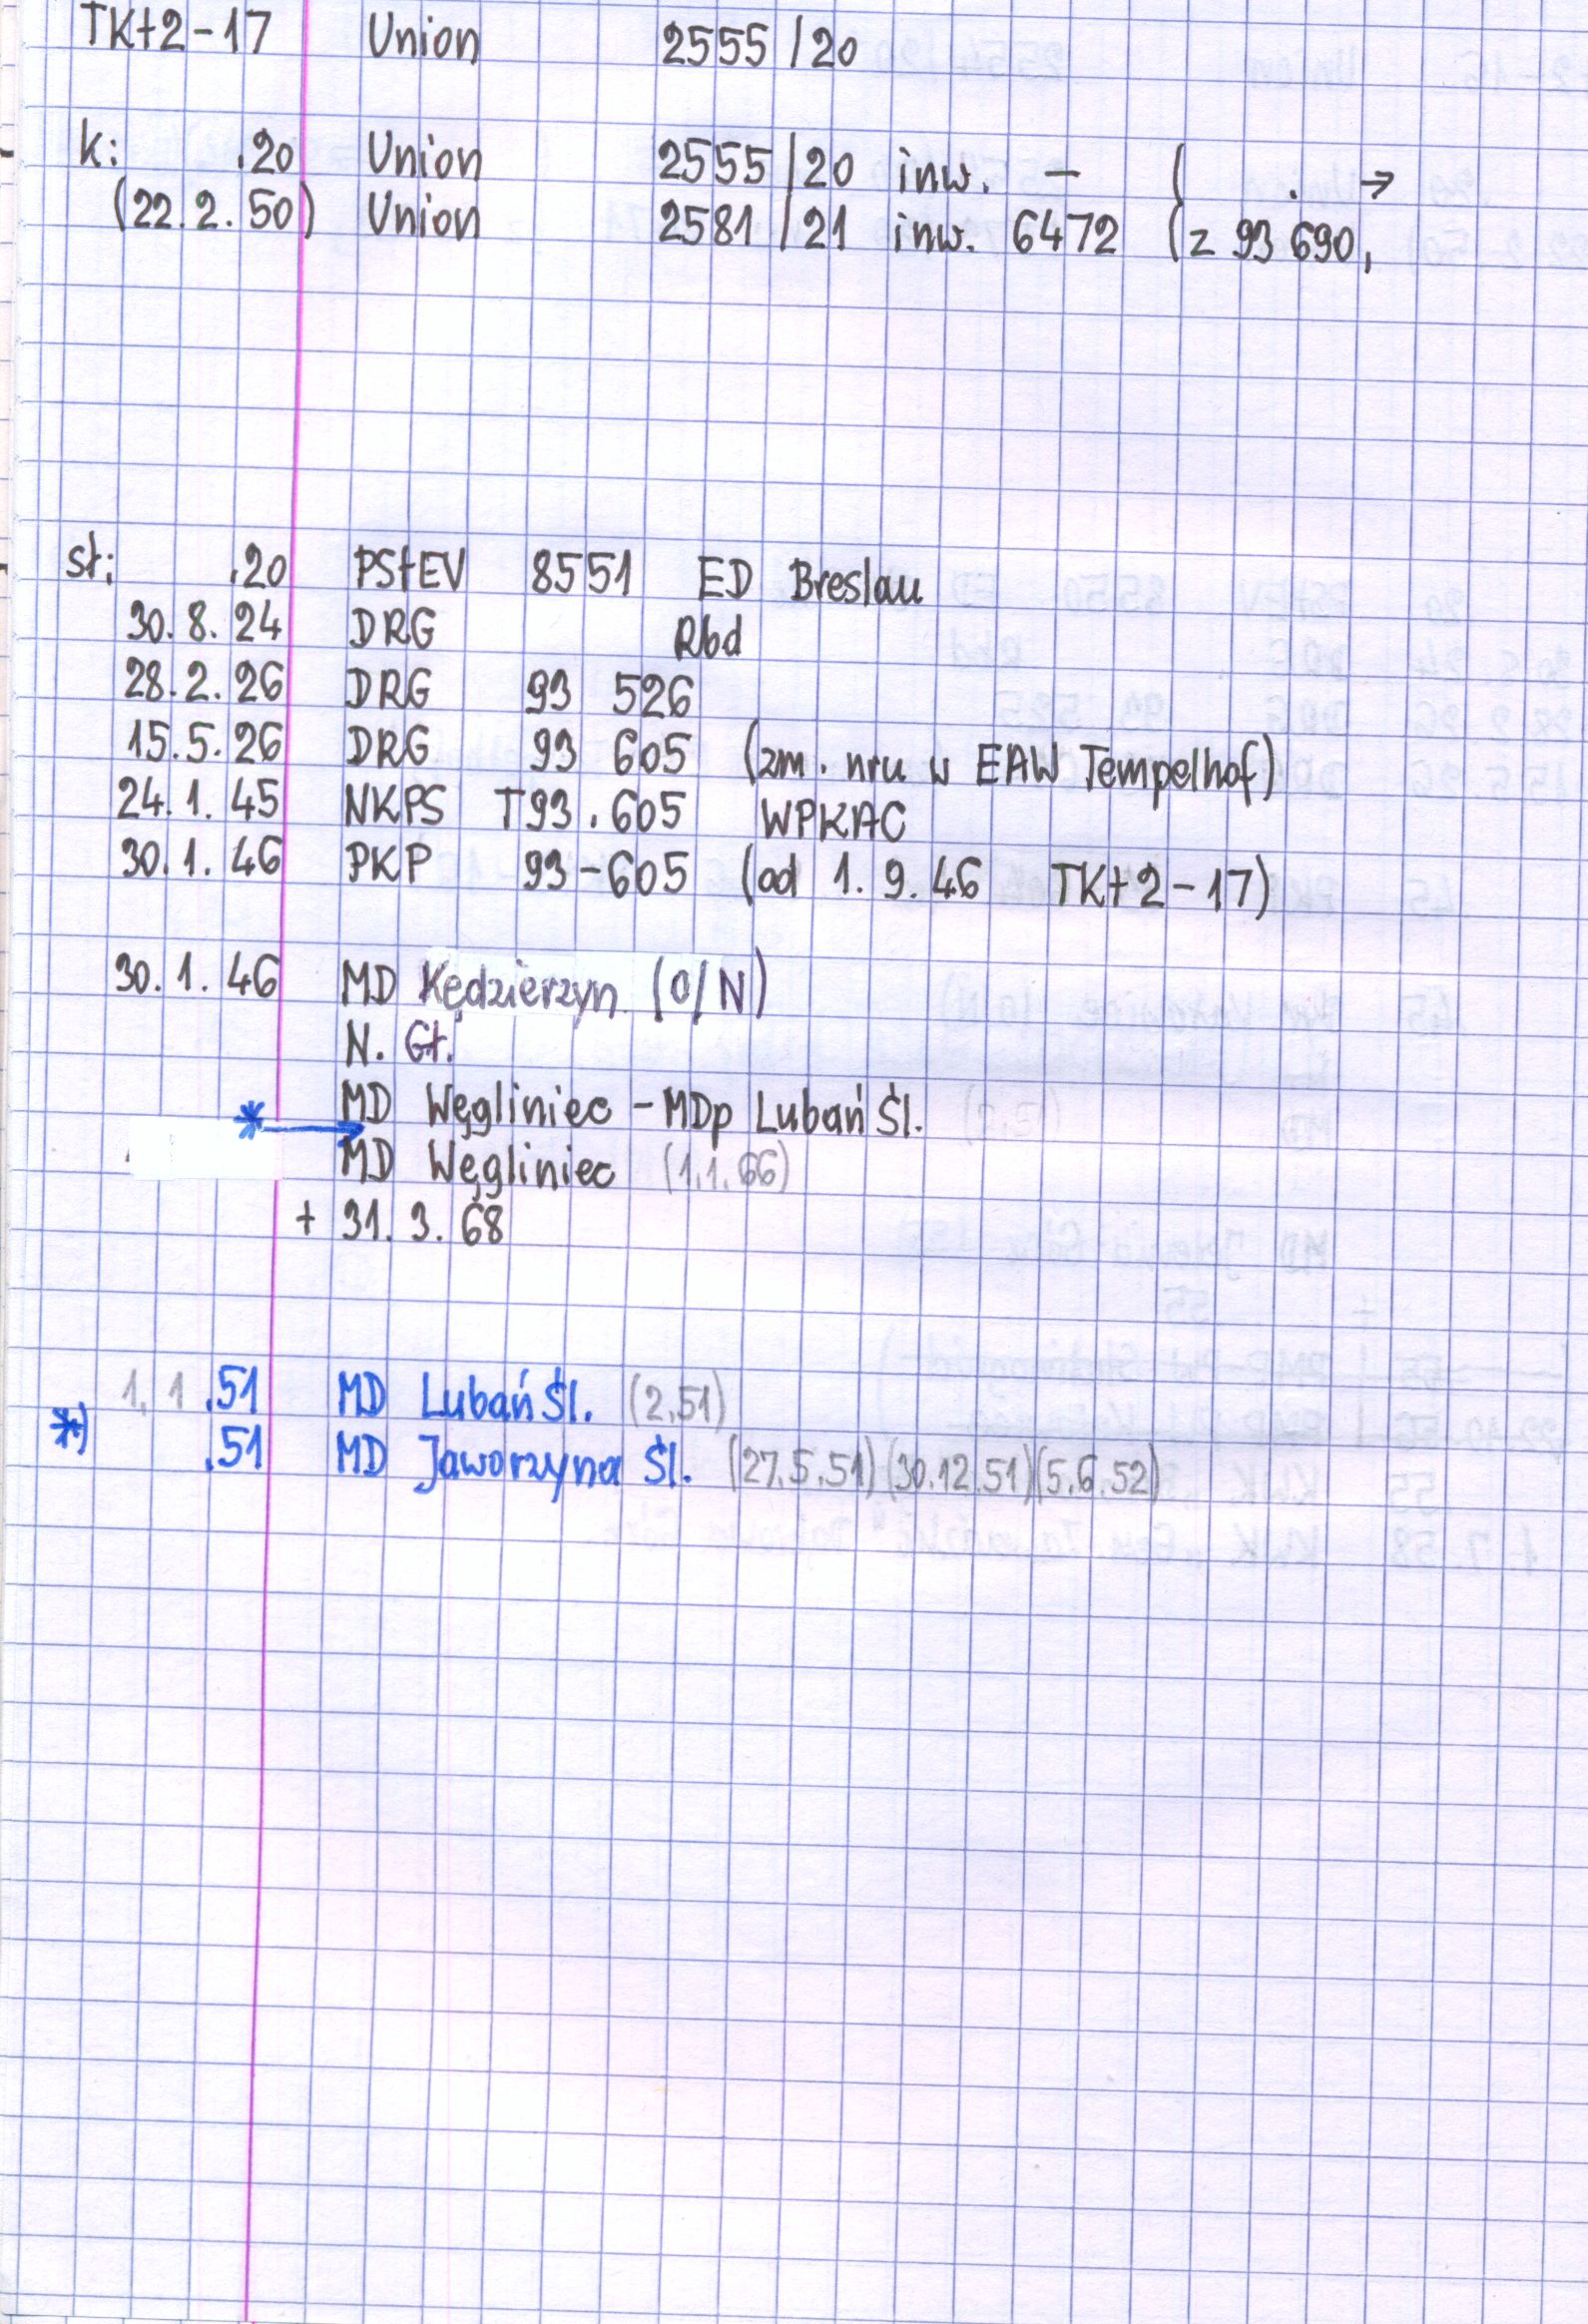 TKt2-17 Union 2555/20
k: .20 Union 2555/20 inw. - ( . →
(22.2.50) Union 2581/21 inw. 6472 (z 93 690,
st: .20 PStEV 8551 ED Breslau
30.8.24 DRG Rbd
28.2.26 DRG 93 526
15.5.26 DRG 93 605 (zm. nru w EAW Tempelhof)
24.1.45 NKPS T93.605 WPKAC
30.1.46 PKP 93-605 (od 1.9.46 TKt2-17)
30.1.46 MD Kędzierzyn (O/N)
N. Gł.
MD Węgliniec - MDp Lubań Śl.
* →
MD Węgliniec (1.1.66)
+ 31.3.68
1.1.51 MD Lubań Śl. (2.51)
*) .51 MD Jaworzyna Śl. (27.5.51) (30.12.51) (5.6.52)